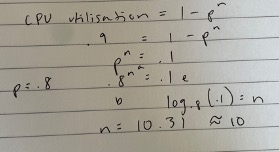 CPU utilisation = 1 - p^n
.9 = 1 - p^n
p^n = .1
p = .8 .8^n = .1
log.8(.1) = n
n = 10.31 ≈ 10